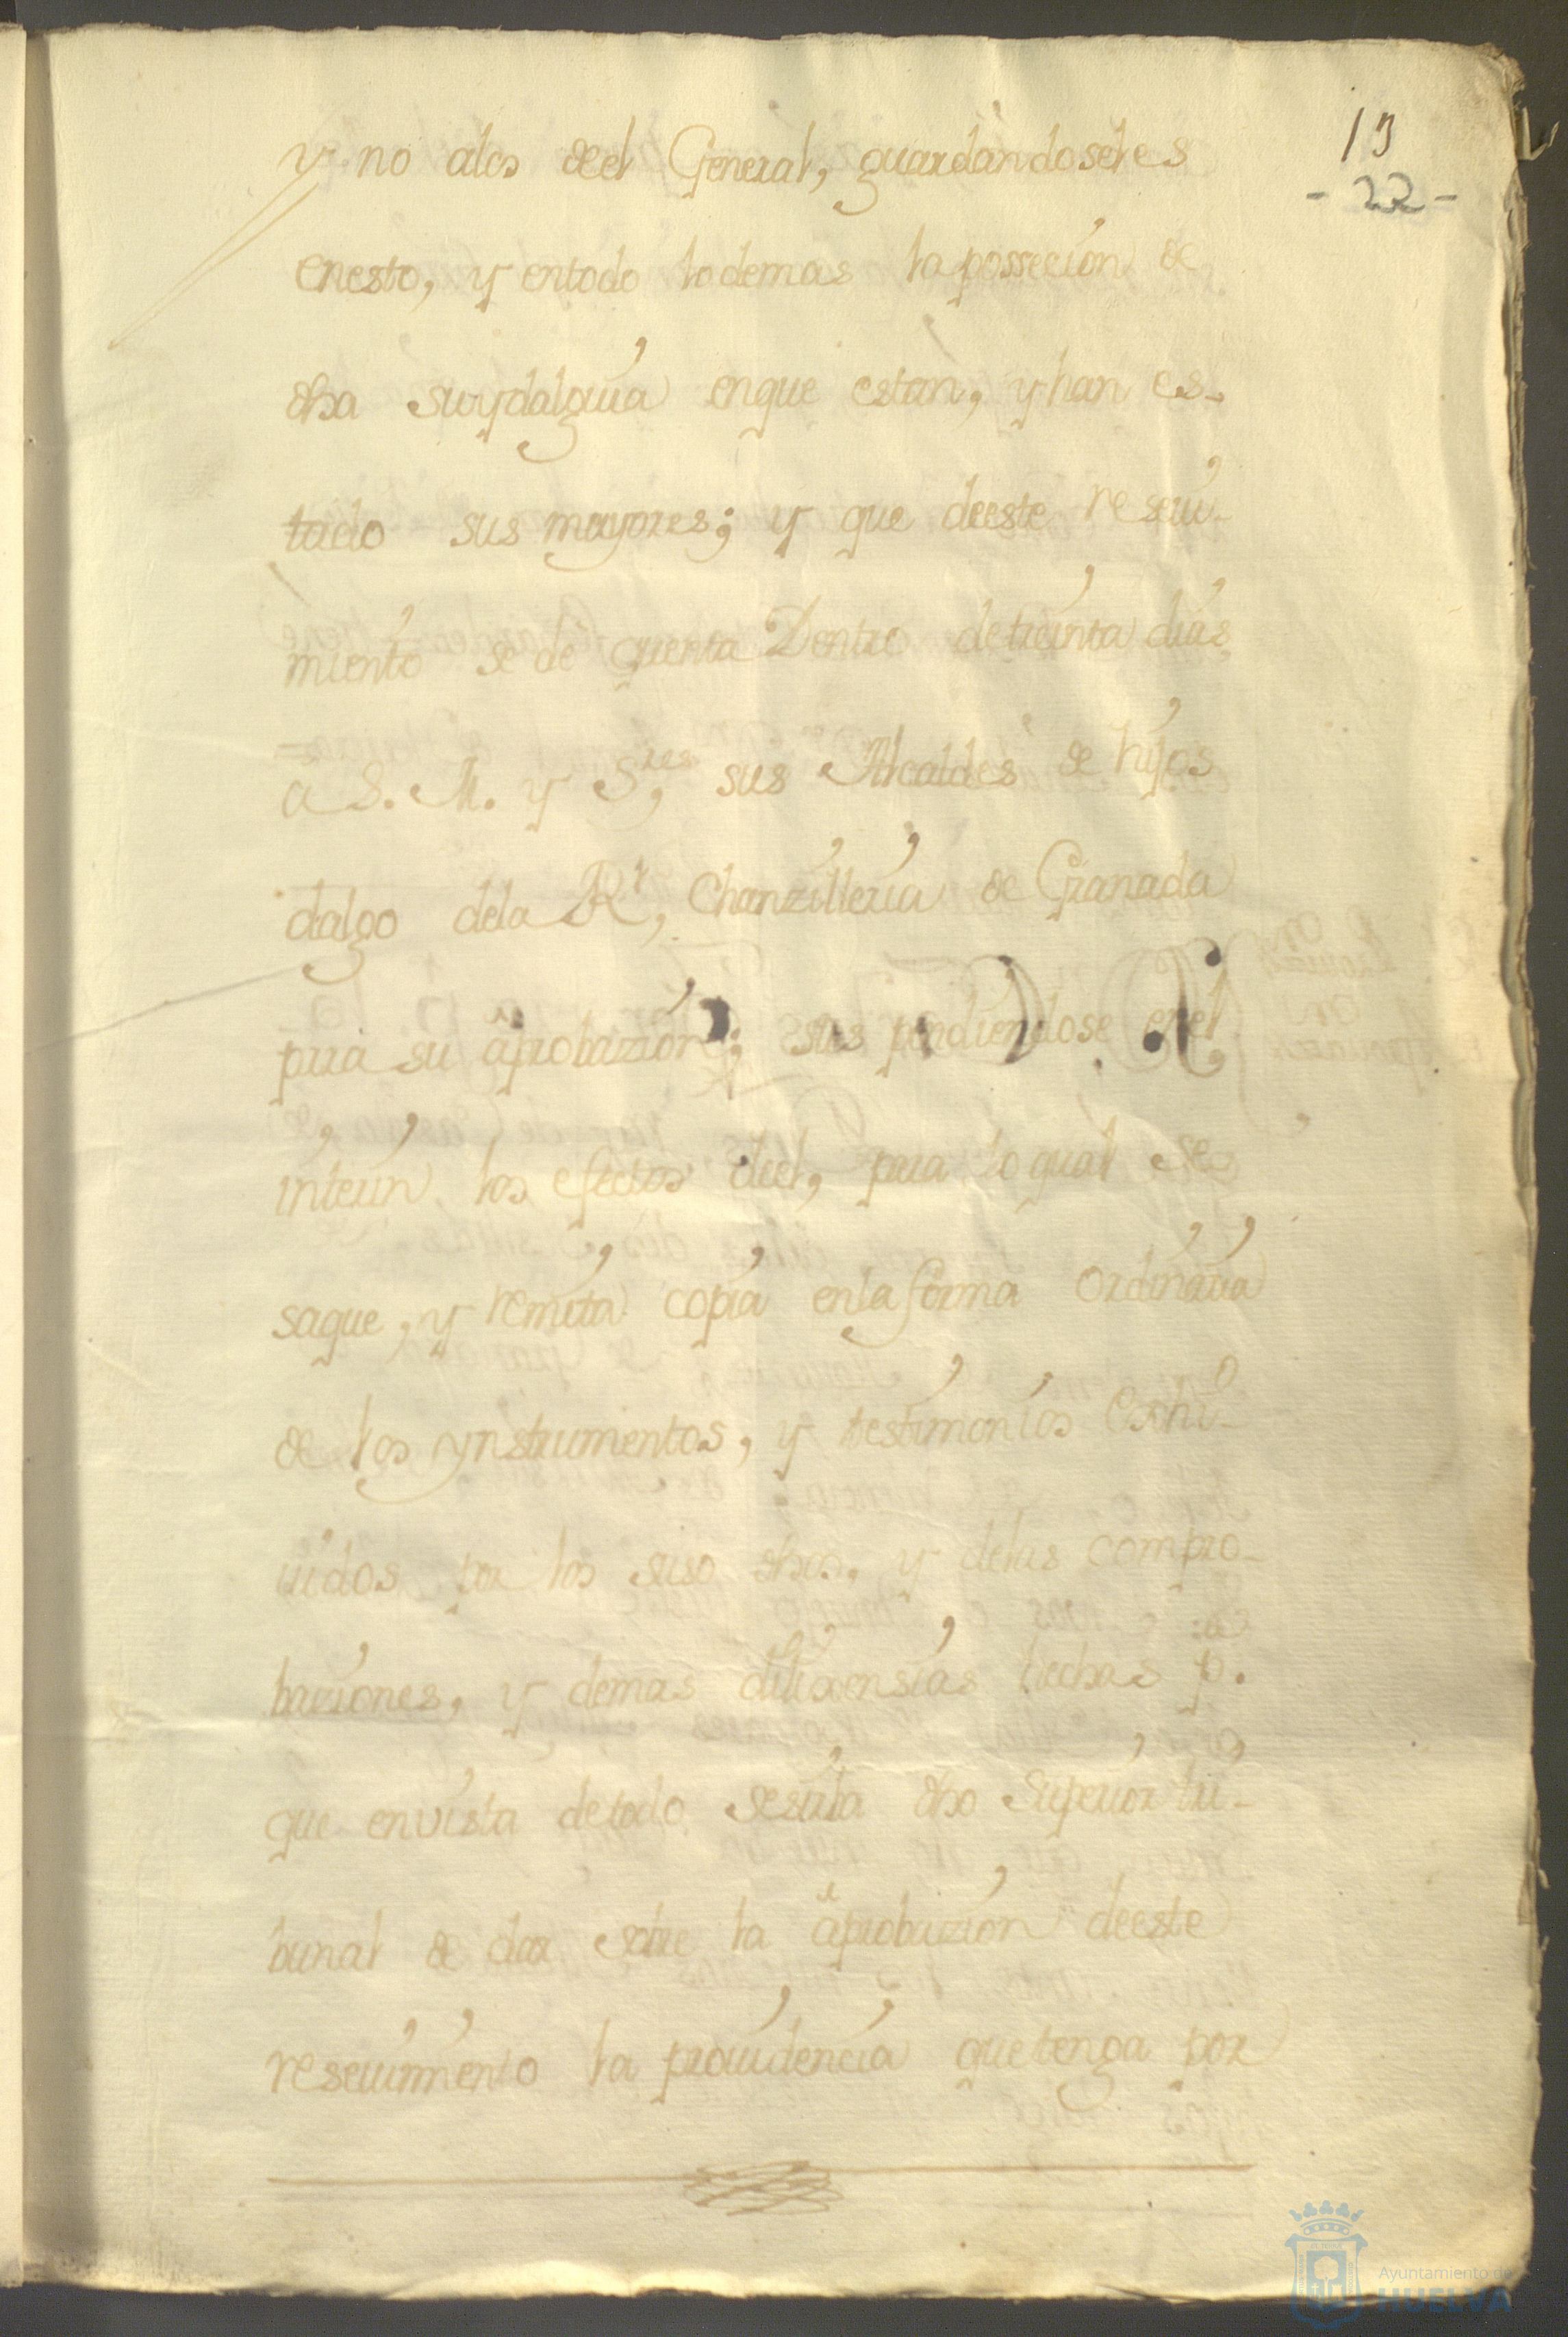 13
- 22 -
y no alos deel General, guardandoseles
enesto, y entodo lodemas la possecion de
dha suydalguia enque estan, y han es-
tado sus mayores; y que deeste reseui-
miento se de quenta Dentro detreinta dias
a S. M. y S.res sus Alcaldes de hijos
dalgo dela Rl, Chanzilleria de Granada
para su aprobazion; suspendiendose enel
interin los efectos deel, para lo qual se
saque, y remita copia enla forma Ordinaria
de los ynstrumentos, y testimonios Exhi-
uidos por los suso dhos, y delas compro-
baziones, y demas dilixensias hechas p.
que envista detodo sesirba dho Superior tri-
bunal de dar sobre la aprobazion deeste
reseuimiento la prouidencia quetenga por
Ayuntamiento de
HUELVA